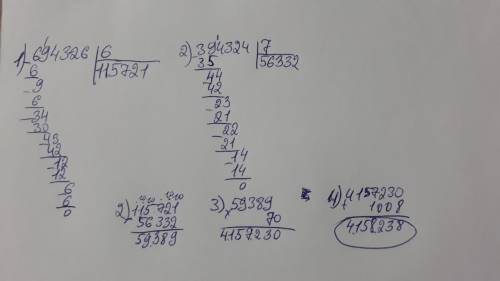 1) 694326 | 6
- 6 | 115721
- 9
6
- 34
30
- 43
42
- 12
12
6
6
0
2) 394324 | 7
- 35 | 56332
44
42
- 23
21
- 22
21
- 14
14
0
2) - 115721
56332
59389
3) × 59389
70
4157230
4) + 4157230
1008
4158238